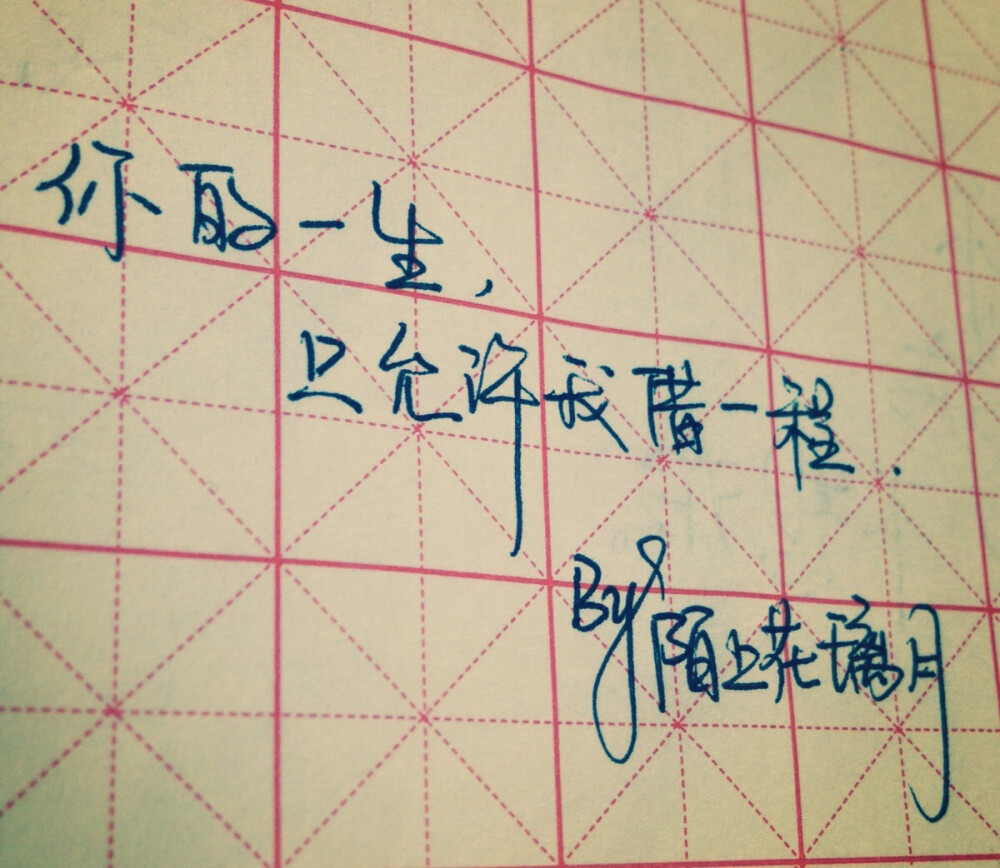 你的一生，
只允许我借一程．
By 陌上花璃月